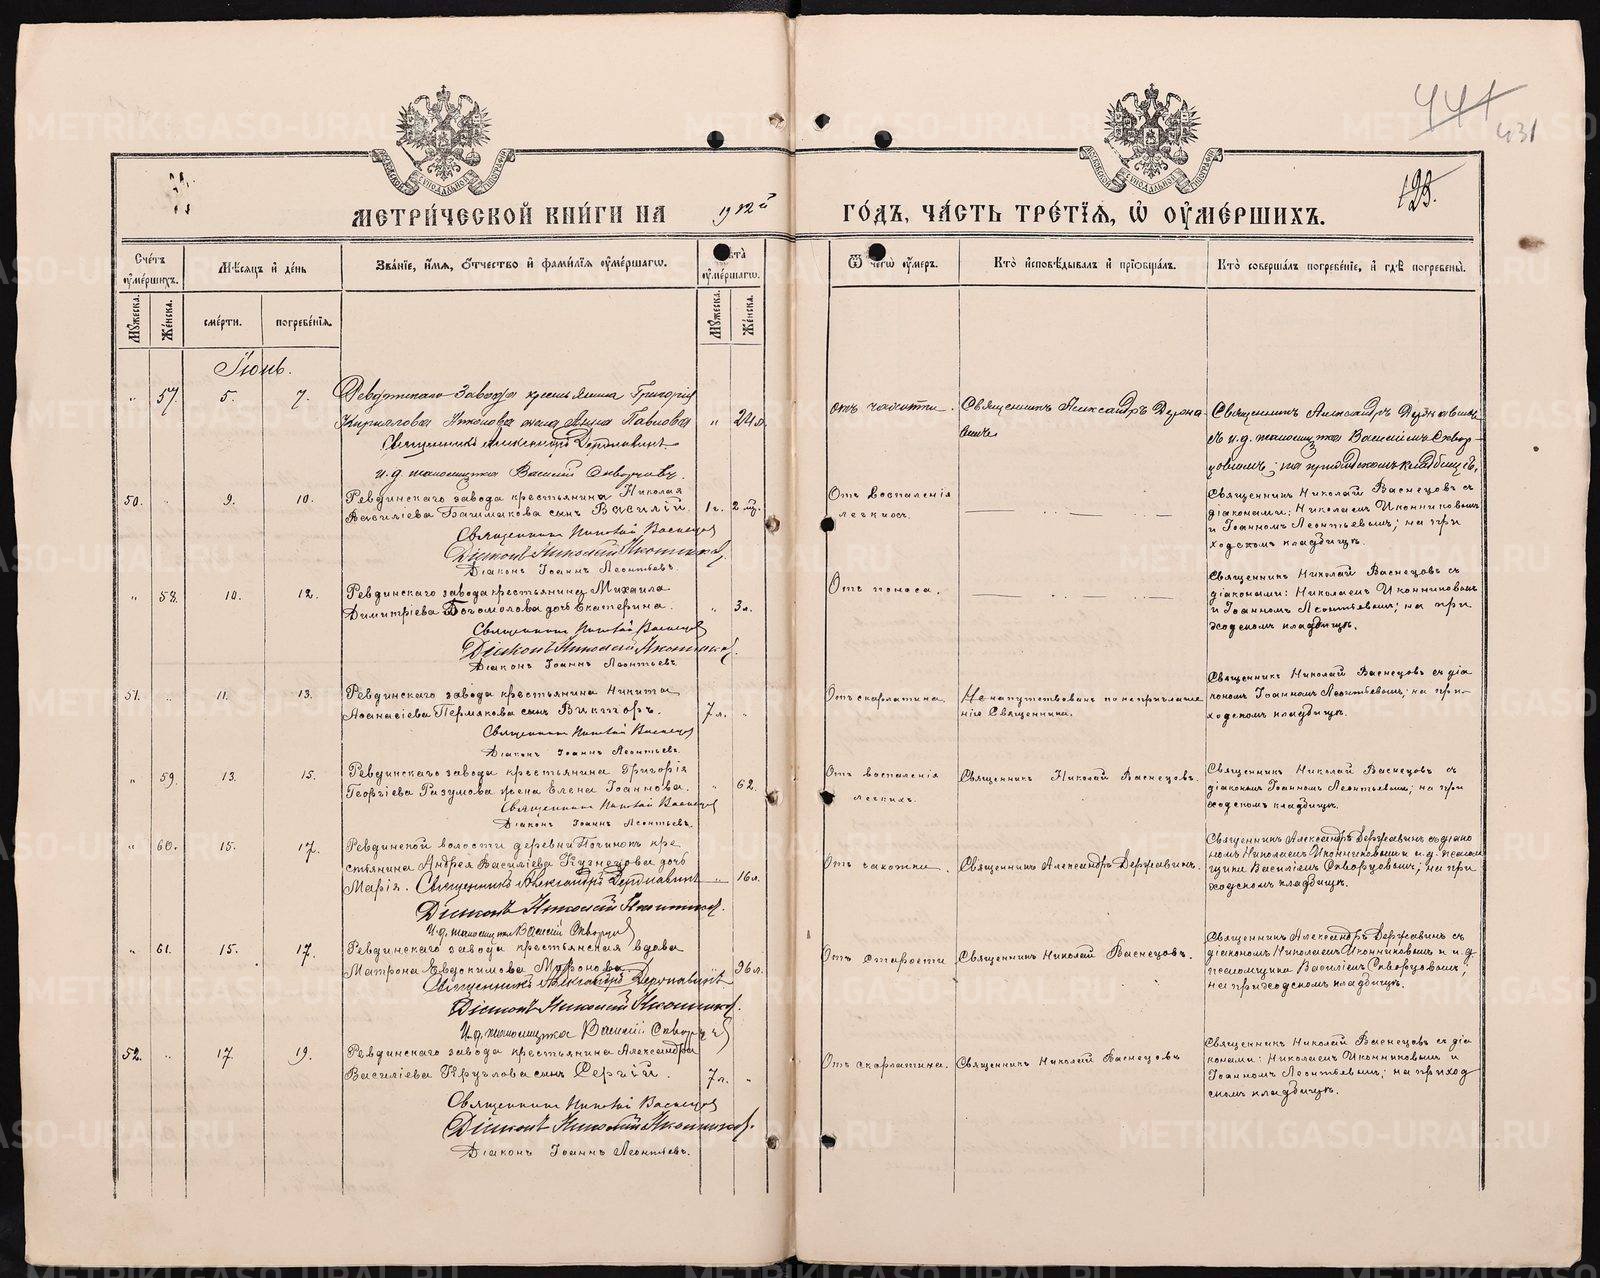 441
431
123.
МЕТРИ́ЧЕСКОЙ КНИ́ГИ НА 1912й ГО́ДЪ, ЧА́СТЬ ТРЕ́ТІѦ, Ѿ ОУ҆МЕ́РШИХЪ.
Сче́тъ оу҆ме́ршихъ.
Мѣ́сяцъ и де́нь
Зва́ніе, и́мя, о́тчество и фами́лія оу҆ме́ршагѡ.
Лѣта оу҆ме́ршагѡ.
Ѿ чегѡ̀ оу҆́меръ.
Кто̀ исповѣ́дывалъ и пріѡбща́лъ.
Кто̀ соверша́лъ погребе́ніе, и гдѣ̀ погребены̀.
Мꙋ́жеска.
Же́нска.
сме́рти.
погребе́нія.
Мꙋ́жеска.
Же́нска.
Іюнь.
" 57. 5. 7.
Ревдинскаго завода крестьянина Григорія
Кириллова жена Анна Павлова " 24 л.
Священникъ Александръ Державинъ
и.д. псаломщика Василій Скворцовъ.
отъ чахотки.
Священникъ Александръ Держа
винъ
Священникъ Александръ Державинъ
съ и.д. псаломщика Василіемъ Сквор-
цовымъ; на приходскомъ кладбищѣ.
50. " 9. 10.
Ревдинскаго завода крестьянина Николая
Василіева Башмакова сынъ Василій. 1 г. 2 мѣ.
Священникъ Николай Васнецовъ
Діаконъ Николай Иконниковъ.
Діаконъ Іоаннъ Леонтьевъ.
Отъ воспаленія
легкихъ.
Священникъ Николай Васнецовъ съ
діаконами: Николаемъ Иконниковымъ
и Іоанномъ Леонтьевымъ; на при
ходскомъ кладбищѣ.
" 58. 10. 12.
Ревдинскаго завода крестьянина Михаила
Димитріева Богомолова дочь Екатерина. " 3 л.
Священникъ Николай Васнецовъ
Діаконъ Николай Иконниковъ.
Діаконъ Іоаннъ Леонтьевъ
Отъ поноса.
Священникъ Николай Васнецовъ съ
діаконами: Николаемъ Иконниковымъ
и Іоанномъ Леонтьевымъ; на при
ходскомъ кладбищѣ.
51. " 11. 13.
Ревдинскаго завода крестьянина Никиты
Аѳанасіева Пермякова сынъ Викторъ. 7 л. "
Священникъ Николай Васнецовъ
Діаконъ Іоаннъ Леонтьевъ.
Отъ скарлатины.
Не напутствованъ по неприглаше
нію Священника.
Священникъ Николай Васнецовъ съ діа
кономъ Іоанномъ Леонтьевымъ; на при-
ходскомъ кладбищѣ.
" 59. 13. 15.
Ревдинскаго завода крестьянина Григорія
Георгіева Разумова жена Елена Іоаннова. " 62.
Священникъ Николай Васнецовъ
Діаконъ Іоаннъ Леонтьевъ.
Отъ воспаленія
легкихъ.
Священникъ Николай Васнецовъ.
Священникъ Николай Васнецовъ съ
діакономъ Іоанномъ Леонтьевымъ; на при
ходскомъ кладбищѣ.
" 60. 15. 17.
Ревдинской волости деревни Починокъ кре
стьянина Андрея Василіева Кузнецова дочь
Марія. Священникъ Александръ Державинъ 16 л.
Діаконъ Николай Иконниковъ.
И.д. псаломщика Василій Скворцовъ
Отъ чахотки.
Священникъ Александръ Державинъ.
Священникъ Александръ Державинъ съ діако
номъ Николаемъ Иконниковымъ и и.д. псалом
щика Василіемъ Скворцовымъ; на при
ходскомъ кладбищѣ.
" 61. 15. 17.
Ревдинскаго завода крестьянская вдова
Матрона Евдокимова Миронова 96 л.
Священникъ Александръ Державинъ
Діаконъ Николай Иконниковъ.
И.д. псаломщика Василій Скворцовъ
Отъ старости
Священникъ Николай Васнецовъ.
Священникъ Александръ Державинъ съ
діакономъ Николаемъ Иконниковымъ и и.д.
псаломщика Василіемъ Скворцовымъ;
на приходскомъ кладбищѣ.
52. " 17. 19.
Ревдинскаго завода крестьянина Александра
Василіева Круглова сынъ Сергій. 7 л. "
Священникъ Николай Васнецовъ
Діаконъ Николай Иконниковъ.
Діаконъ Іоаннъ Леонтьевъ.
Отъ скарлатины.
Священникъ Николай Васнецовъ
Священникъ Николай Васнецовъ съ діа
конами: Николаемъ Иконниковымъ и
Іоанномъ Леонтьевымъ; на приход
скомъ кладбищѣ.
METRIKI.GASO-URAL.RU